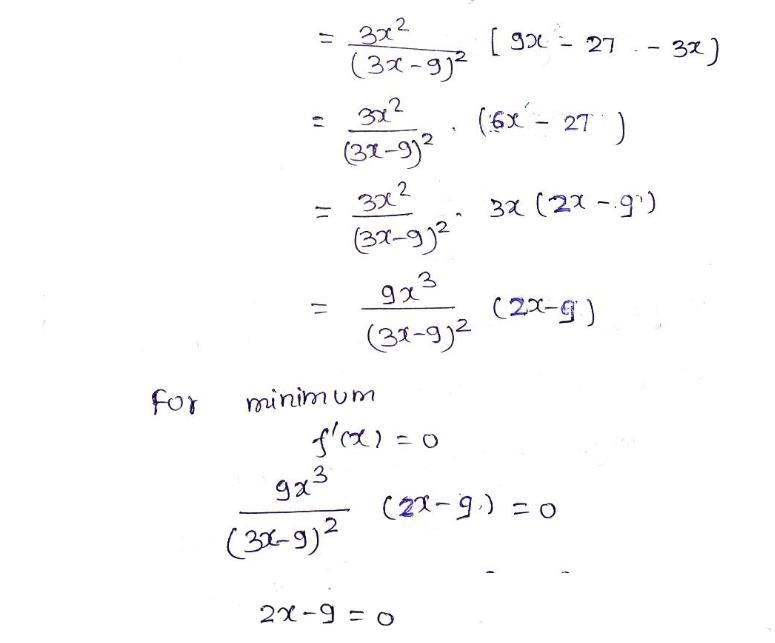 = 3x²/(3x-9)² [9x - 27 - 3x)
= 3x²/(3x-9)² . (6x - 27)
= 3x²/(3x-9)² . 3x (2x - 9)
= 9x³/(3x-9)² (2x-9)
For minimum
f'(x) = 0
9x³/(3x-9)² (2x-9) = 0
2x-9 = 0